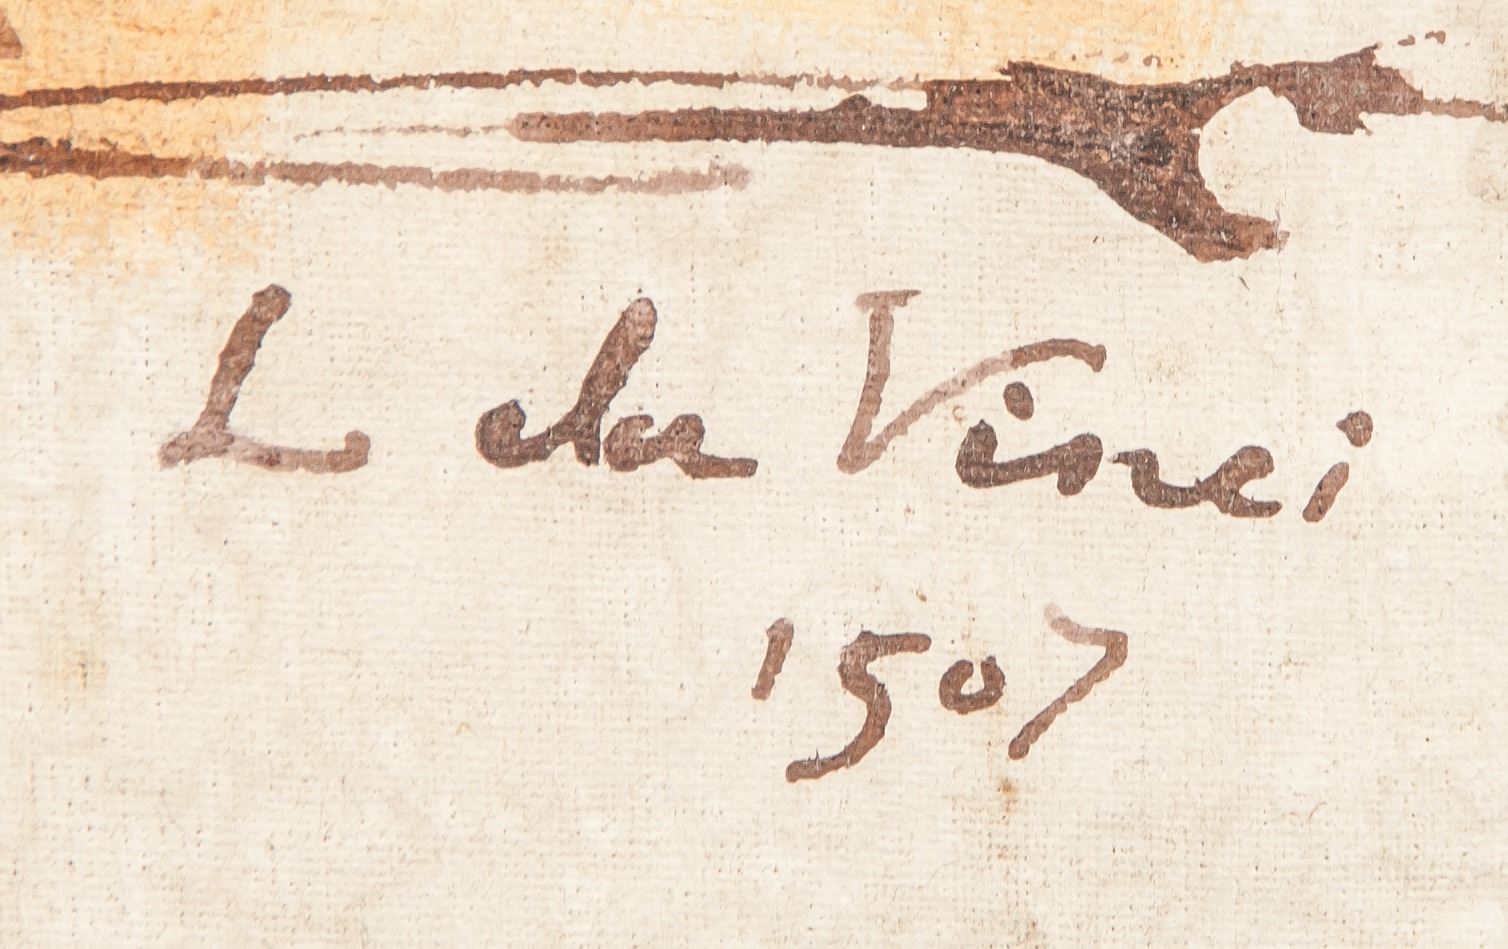 L da Vinci
1507